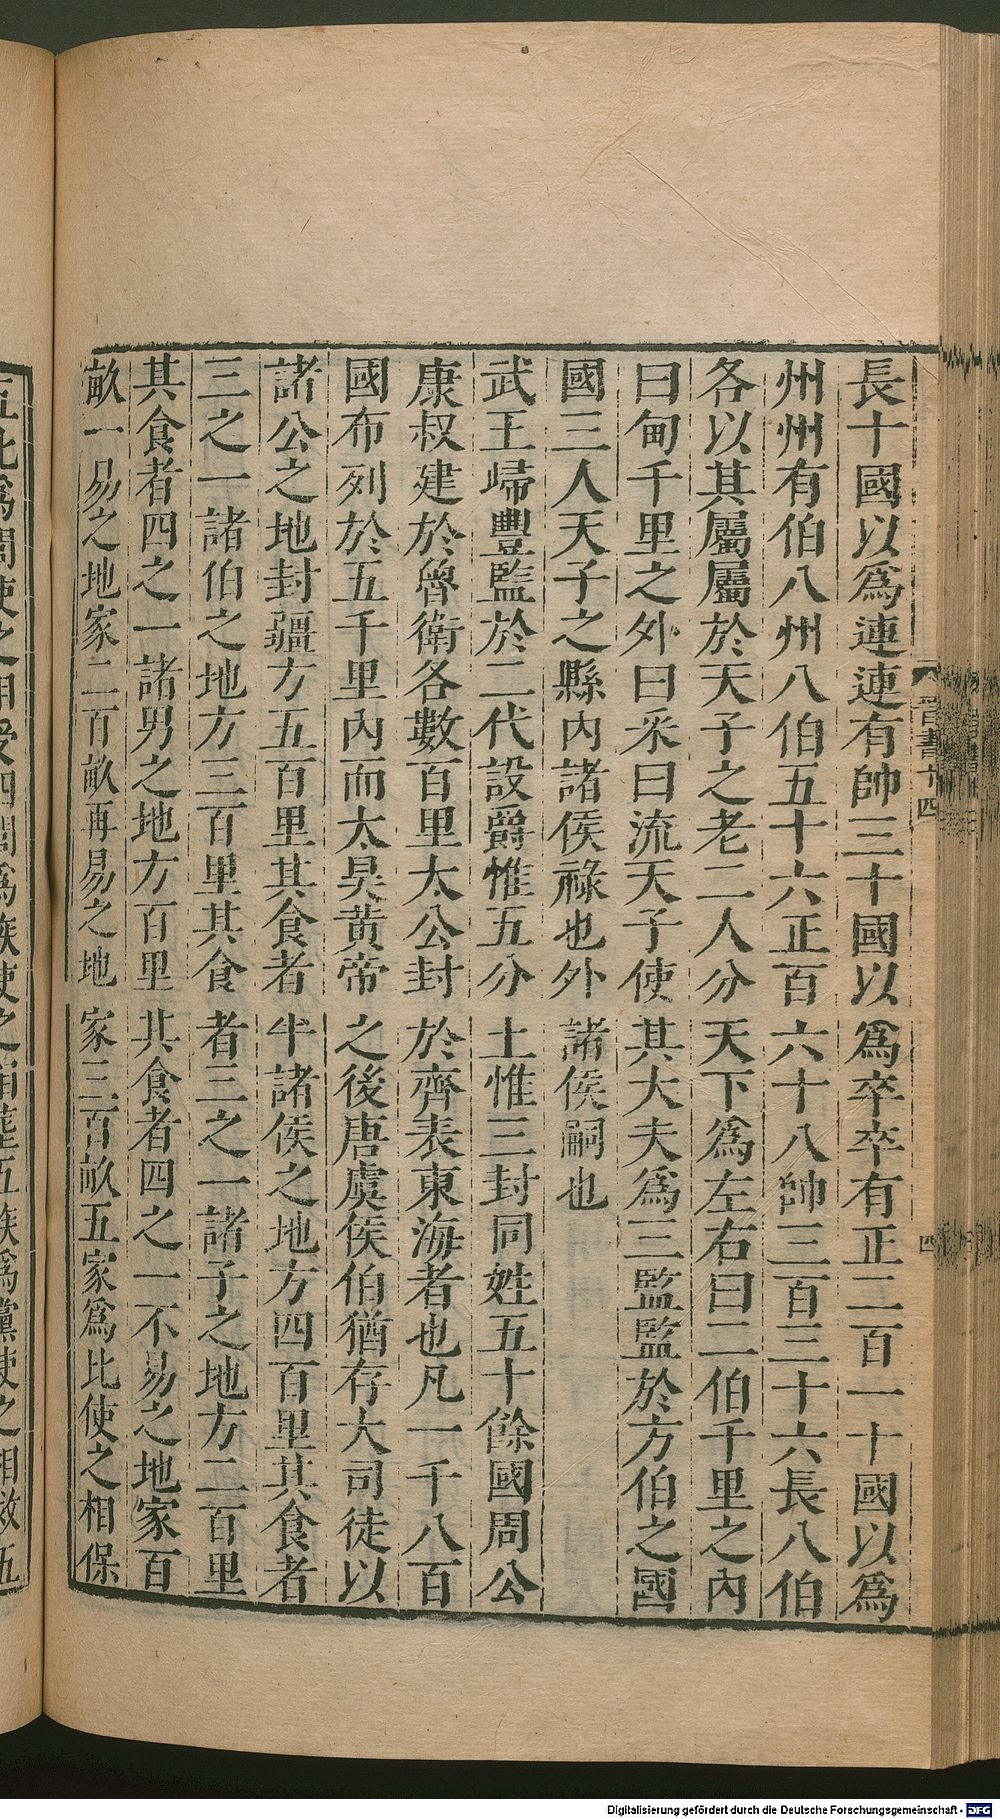 長十國以爲連連有帥三十國以爲卒卒有正二百一十國以爲
州州有伯八州八伯五十六正百六十八帥三百三十六長八伯
各以其屬屬於天子之老二人分天下爲左右曰二伯千里之內
曰甸千里之外曰采曰流天子使其大夫爲三監監於方伯之國
國三人天子之縣內諸侯祿也外諸侯嗣也
武王歸豐監於二代設爵惟五分土惟三封同姓五十餘國周公
康叔建於魯衛各數百里太公封於齊表東海者也凡一千八百
國布列於五千里內而太昊黃帝之後唐虞侯伯猶存大司徒以
諸公之地封疆方五百里其食者半諸侯之地方四百里其食者
三之一諸伯之地方三百里其食者三之一諸子之地方二百里
其食者四之一諸男之地方百里其食者四之一不易之地家百
畝一易之地家二百畝再易之地家三百畝五家爲比使之相保
五比爲閭使之相受四閭爲族使之相葬五族爲黨使之相救五
晉書十四
四
Digitalisierung gefördert durch die Deutsche Forschungsgemeinschaft - DFG